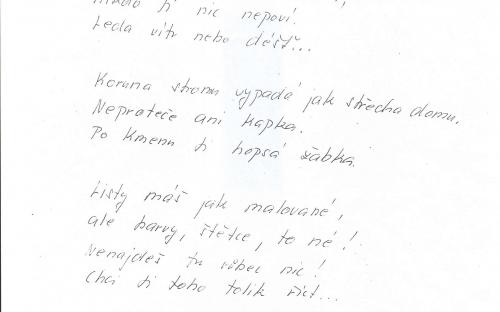 Nikdo ti nic nepoví!
Leda vítr nebo déšť...
Koruna stromu vypadá jak střecha domu.
Neprateče ani kapka.
Po kmenu ti hopsá žabka.
Listy máš jak malované,
ale barvy, štětce, to né!
Nenajdeš tu vůbec nic!
Chci ti toho tolik říct...